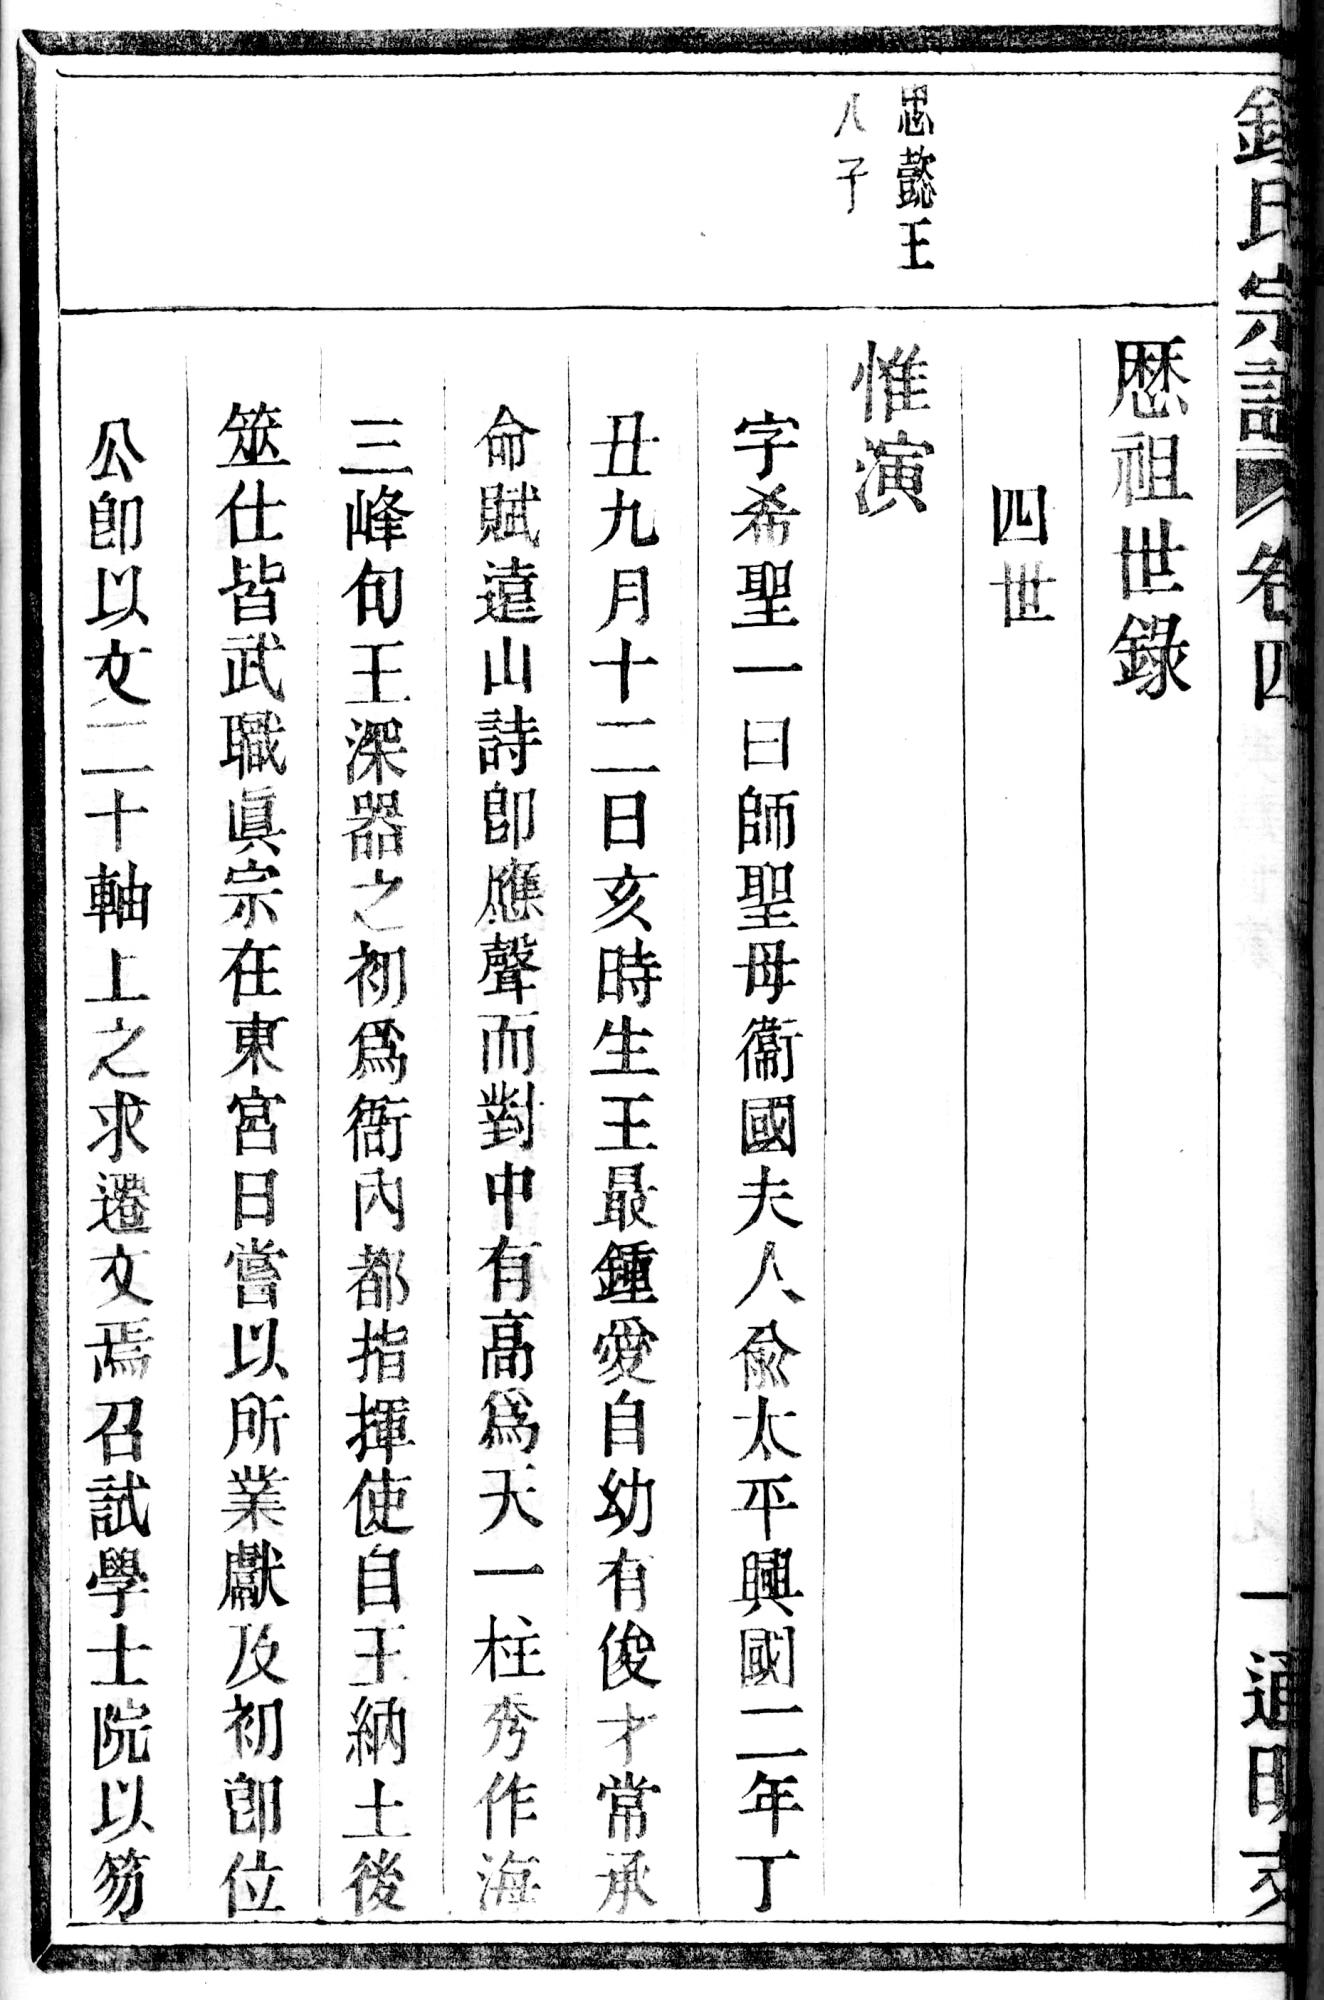 錢氏宗譜 卷四 一 通明支
歷祖世錄
四世
忠懿王
八子
惟演
字希聖一曰師聖母衞國夫人俞太平興國二年丁
丑九月十二日亥時生王最鍾愛自幼有俊才常承
命賦遠山詩卽應聲而對中有高爲天一柱秀作海
三峰句王深器之初爲衙內都指揮使自王納土後
筮仕皆武職眞宗在東宮日嘗以所業獻及初卽位
公卽以文二十軸上之求遷文焉召試學士院以笏